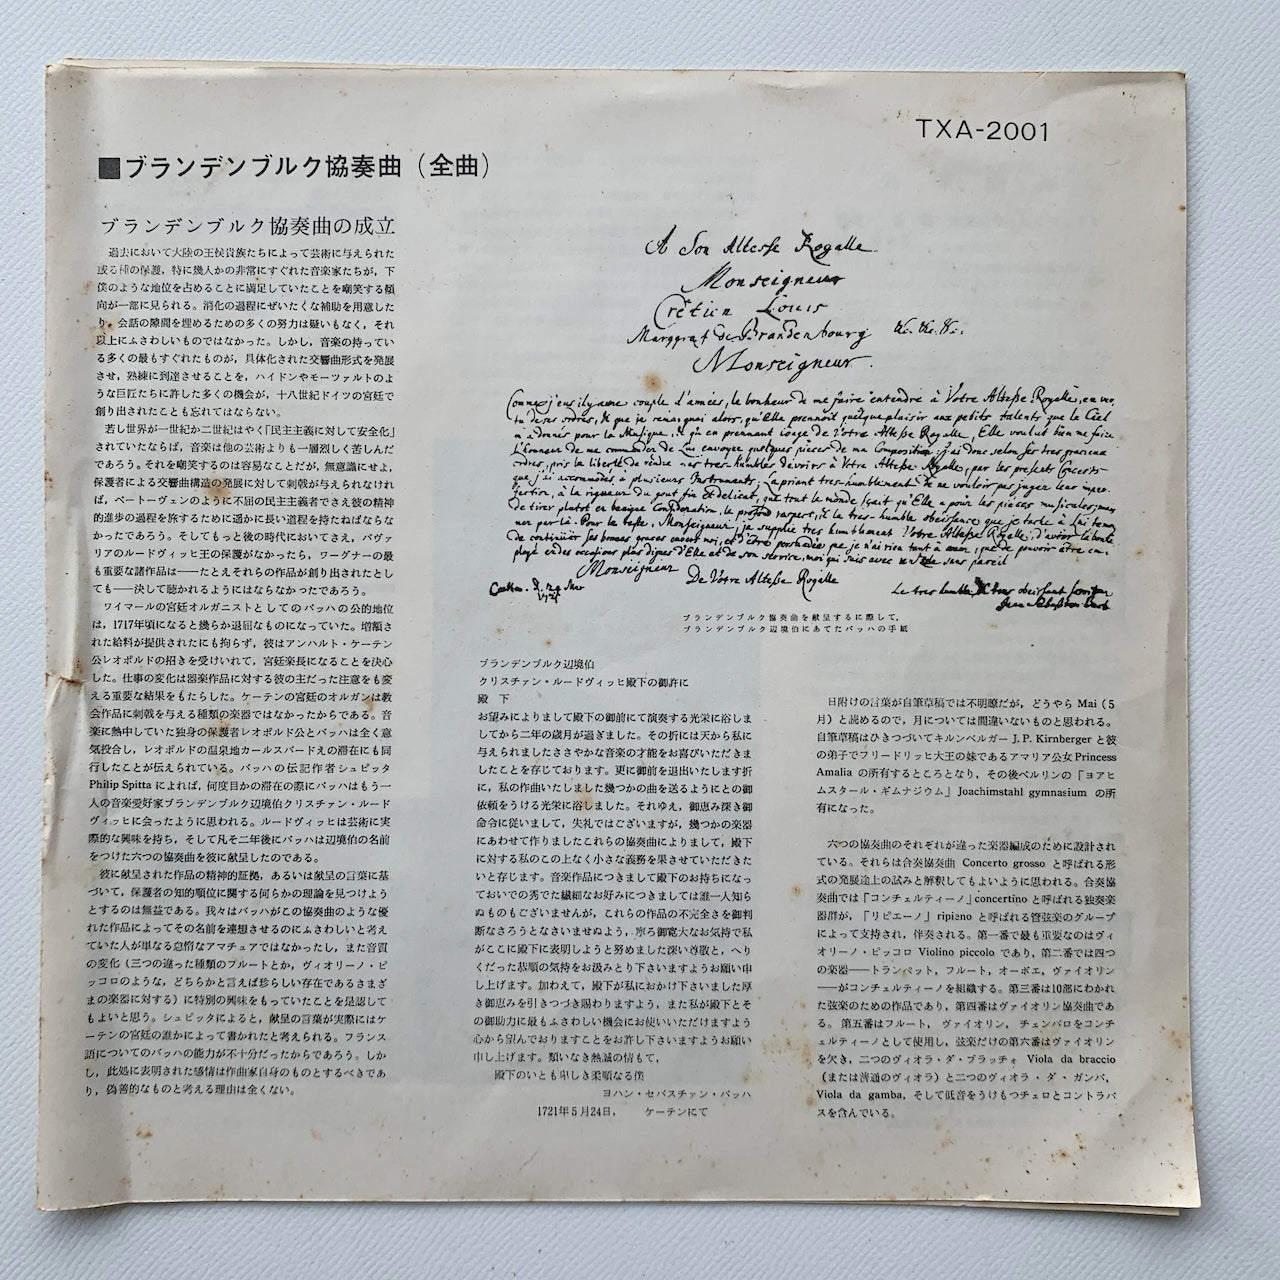 TXA-2001
■ブランデンブルク協奏曲（全曲）
ブランデンブルク協奏曲の成立
過去において大陸の王侯貴族たちによって芸術に与えられた
或る種の保護，特に幾人かの非常にすぐれた音楽家たちが，下
僕のような地位を占めることに満足していたことを嘲笑する傾
向が一部に見られる。消化の過程にぜいたくな補助を用意した
り，会話の隙間を埋めるための多くの努力は疑いもなく，それ
以上にふさわしいものではなかった。しかし，音楽の持ってい
る多くの最もすぐれたものが，具体化された交響曲形式を発展
させ，熟練に到達させることを，ハイドンやモーツァルトのよ
うな巨匠たちに許した多くの機会が，十八世紀ドイツの宮廷で
創り出されたことも忘れてはならない。
若し世界が一世紀か二世紀はやく「民主主義に対して安全化」
されていたならば，音楽は他の芸術よりも一層烈しく苦しんだ
であろう。それを嘲笑するのは容易なことだが，無意識にせよ，
保護者による交響曲構造の発展に対して刺戟が与えられなけれ
ば，ベートーヴェンのように不屈の民主主義者でさえ彼の精神
的進歩の過程を旅するために遥かに長い道程を持たねばならな
かったであろう。そしてもっと後の時代においてさえ，バヴァ
リアのルードヴィッヒ王の保護がなかったら，ワーグナーの最
も重要な諸作品は——たとえそれらの作品が創り出されたとし
ても——決して聴かれるようにはならなかったであろう。
ワイマールの宮廷オルガニストとしてのバッハの公的地位
は，1717年頃になると幾らか退屈なものになっていた。増額さ
れた給料が提供されたにも拘らず，彼はアンハルト・ケーテン
公レオポルドの招きを受けいれて，宮廷楽長になることを決心
した。仕事の変化は器楽作品に対する彼の主だった注意をも変
える重要な結果をもたらした。ケーテンの宮廷のオルガンは教
会作品に刺戟を与える種類の楽器ではなかったからである。音
楽に熱中していた独身の保護者レオポルド公とバッハは全く意
気投合し，レオポルドの温泉地カールスバードえの滞在にも同
行したことが伝えられている。バッハの伝記作者シュピッタ
Philip Spitta によれば，何度目かの滞在の際にバッハはもう一
人の音楽愛好家ブランデンブルク辺境伯クリスチャン・ルード
ヴィッヒに会ったように思われる。ルードヴィッヒは芸術に実
際的な興味を持ち，そして凡そ二年後にバッハは辺境伯の名前
をつけた六つの協奏曲を彼に献呈したのである。
彼に献呈された作品の精神的証拠，あるいは献呈の言葉に基
づいて，保護者の知的順位に関する何らかの理論を見つけよう
とするのは無益である。我々はバッハがこの協奏曲のような優
れた作品によってその名前を連想させるのにふさわしいと考え
ていた人が単なる怠惰なアマチュアではなかったし，また音質
の変化（三つの違った種類のフルートとか，ヴィオリーノ・ピ
ッコロのような，どちらかと言えば珍らしい存在であるさまざ
まの楽器に対する）に特別の興味をもっていたことを是認して
もよいと思う。シュピッタによると，献呈の言葉が実際にはケ
ーテンの宮廷の誰かによって書かれたと考えられる。フランス
語についてのバッハの能力が不十分だったからであろう。しか
し，此処に表明された感情は作曲家自身のものとするべきであ
り，偽善的なものと考える理由は全くない。
A Son Altesse Royalle
Monseigneur
Crêtien Louis
Marggraf de Brandenbourg &c. &c. &c.
Monseigneur.
Monseigneur
De Votre Altesse Royalle
ブランデンブルク協奏曲を献呈するに際して，
ブランデンブルク辺境伯にあてたバッハの手紙
ブランデンブルク辺境伯
クリスチャン・ルードヴィッヒ殿下の御許に
殿　下
お望みによりまして殿下の御前にて演奏する光栄に浴しま
してから二年の歳月が過ぎました。その折には天から私に
与えられましたささやかな音楽の才能をお喜びいただきま
したことを存じております。更に御前を退出いたします折
に，私の作曲いたしました幾つかの曲を送るようにとの御
依頼をうける光栄に浴しました。それゆえ，御恵み深き御
命令に従いまして，失礼ではございますが，幾つかの楽器
にあわせて作りましたこれらの協奏曲によりまして，殿下
に対する私のこの上なく小さな義務を果させていただきた
いと存じます。音楽作品につきまして殿下のお持ちになっ
ておいでの秀でた繊細なお好みにつきましては誰一人知ら
ぬものもございませんが，これらの作品の不完全さを御判
断なさろうとなさいませぬよう，寧ろ御寛大なお気持で私
がここに殿下に表明しようと努めました深い尊敬と，へり
くだった恭順の気持をお汲みとり下さいますようお願い申
し上げます。加えて，殿下が私におかけ下さいました厚
き御恵みを引きつづき賜わりますよう，また私が殿下とそ
の御助力に最もふさわしい機会にお使いいただけますよう
心から望んでおりますことをお許し下さいますようお願い
申し上げます。類いなき熱誠の情もて，
殿下のいとも卑しき柔順なる僕
ヨハン・セバスチァン・バッハ
1721年5月24日，　ケーテンにて
日附けの言葉が自筆草稿では不明瞭だが，どうやら Mai（5
月）と読めるので，月については間違いないものと思われる。
自筆草稿はひきつづいてキルンベルガー J. P. Kirnberger と彼
の弟子でフリードリッヒ大王の妹であるアマリア公女 Princess
Amalia の所有するところとなり，その後ベルリンの「ヨアヒ
ムスタール・ギムナジウム」Joachimstahl gymnasium の所
有になった。
六つの協奏曲のそれぞれが違った楽器編成のために設計され
ている。それらは合奏協奏曲 Concerto grosso と呼ばれる形
式の発展途上の試みと解釈してもよいように思われる。合奏協
奏曲では「コンチェルティーノ」concertino と呼ばれる独奏楽
器群が，「リピエーノ」ripieno と呼ばれる管弦楽のグループ
によって支持され，伴奏される。第一番で最も重要なのはヴィ
オリーノ・ピッコロ Violino piccolo であり，第二番では四つ
の楽器——トランペット，フルート，オーボエ，ヴァイオリン
——がコンチェルティーノを組織する。第三番は10部にわかれ
た弦楽のための作品であり，第四番はヴァイオリン協奏曲であ
る。第五番はフルート，ヴァイオリン，チェンバロをコンチ
ェルティーノとして使用し，弦楽だけの第六番はヴァイオリン
を欠き，二つのヴィオラ・ダ・ブラッチォ Viola da braccio
（または普通のヴィオラ）と二つのヴィオラ・ダ・ガンバ，
Viola da gamba，そして低音をうけもつチェロとコントラバ
スを含んでいる。